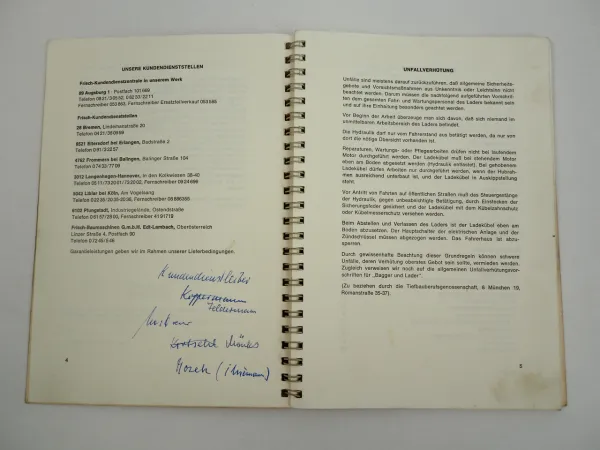 UNSERE KUNDENDIENSTSTELLEN
Frisch-Kundendienstzentrale in unserem Werk
89 Augsburg 1 · Postfach 101 669
Frisch-Kundendienststellen
28 Bremen, Lindenstraße 20
8521 Bitersdorf bei Erlangen, Bachstraße 2
4762 Frommern bei Balingen, Balinger Straße 104
3012 Langenhagen-Hannover, In den Kolkwiesen 38-40
5042 Liblar bei Köln, Am Vogelsang
6103 Pfungstadt, Industriegelände, Ostendstraße
Frisch-Baumaschinen G.m.b.H. Edt-Lambach, Oberösterreich
Linzer Straße 4, Postfach 20
Garantieleistungen geben wir im Rahmen unserer Lieferbedingungen.
Kundendienstleiter
Koppermann
4
UNFALLVERHÜTUNG
Unfälle sind meistens darauf zurückzuführen, daß allgemeine Sicherheits-
gebote und Vorsichtsmaßnahmen aus Unkenntnis oder Leichtsinn nicht
beachtet werden. Darum müssen die nachfolgend aufgeführten Vorschrif-
ten dem gesamten Fahr- und Wartungspersonal des Laders bekannt sein
und auf ihre Einhaltung besonders geachtet werden.
Vor Beginn der Arbeit überzeuge man sich davon, daß sich niemand im
unmittelbaren Arbeitsbereich des Laders befindet.
Die Hydraulik darf nur vom Fahrerstand aus betätigt werden, da nur von
dort die nötige Übersicht vorhanden ist.
Reparaturen, Wartungs- oder Pflegearbeiten dürfen nicht bei laufendem
Motor durchgeführt werden. Der Ladekübel muß bei stehendem Motor
eben am Boden abgesetzt werden (Hydraulik entlastet). Bei gehobenem
Ladekübel dürfen Arbeiten nur durchgeführt werden, wenn der Hubrah-
men ausreichend unterbaut ist, und der Ladekübel in Auskippstellung
steht.
Vor Antritt von Fahrten auf öffentlichen Straßen muß das Steuergestänge
der Hydraulik, gegen unbeabsichtigte Betätigung, durch Einstecken der
Sicherungsfeder gesichert und der Ladekübel mit dem Kübelzahnschutz
oder Kübelmesserschutz versehen werden.
Beim Abstellen und Verlassen des Laders ist der Ladekübel eben am
Boden abzusetzen. Der Hauptschalter der elektrischen Anlage und der
Zündschlüssel müssen abgezogen werden. Das Fahrerhaus ist abzu-
sperren.
Durch gewissenhafte Beachtung dieser Grundregeln können schwere
Unfälle, deren Verhütung oberstes Gebot sein sollte, vermieden werden.
Zugleich verweisen wir noch auf die allgemeinen Unfallverhütungsvor-
schriften für „Bagger und Lader".
(Zu beziehen durch die Tiefbauberufsgenossenschaft, 8 München 19,
Romanstraße 35-37).
5